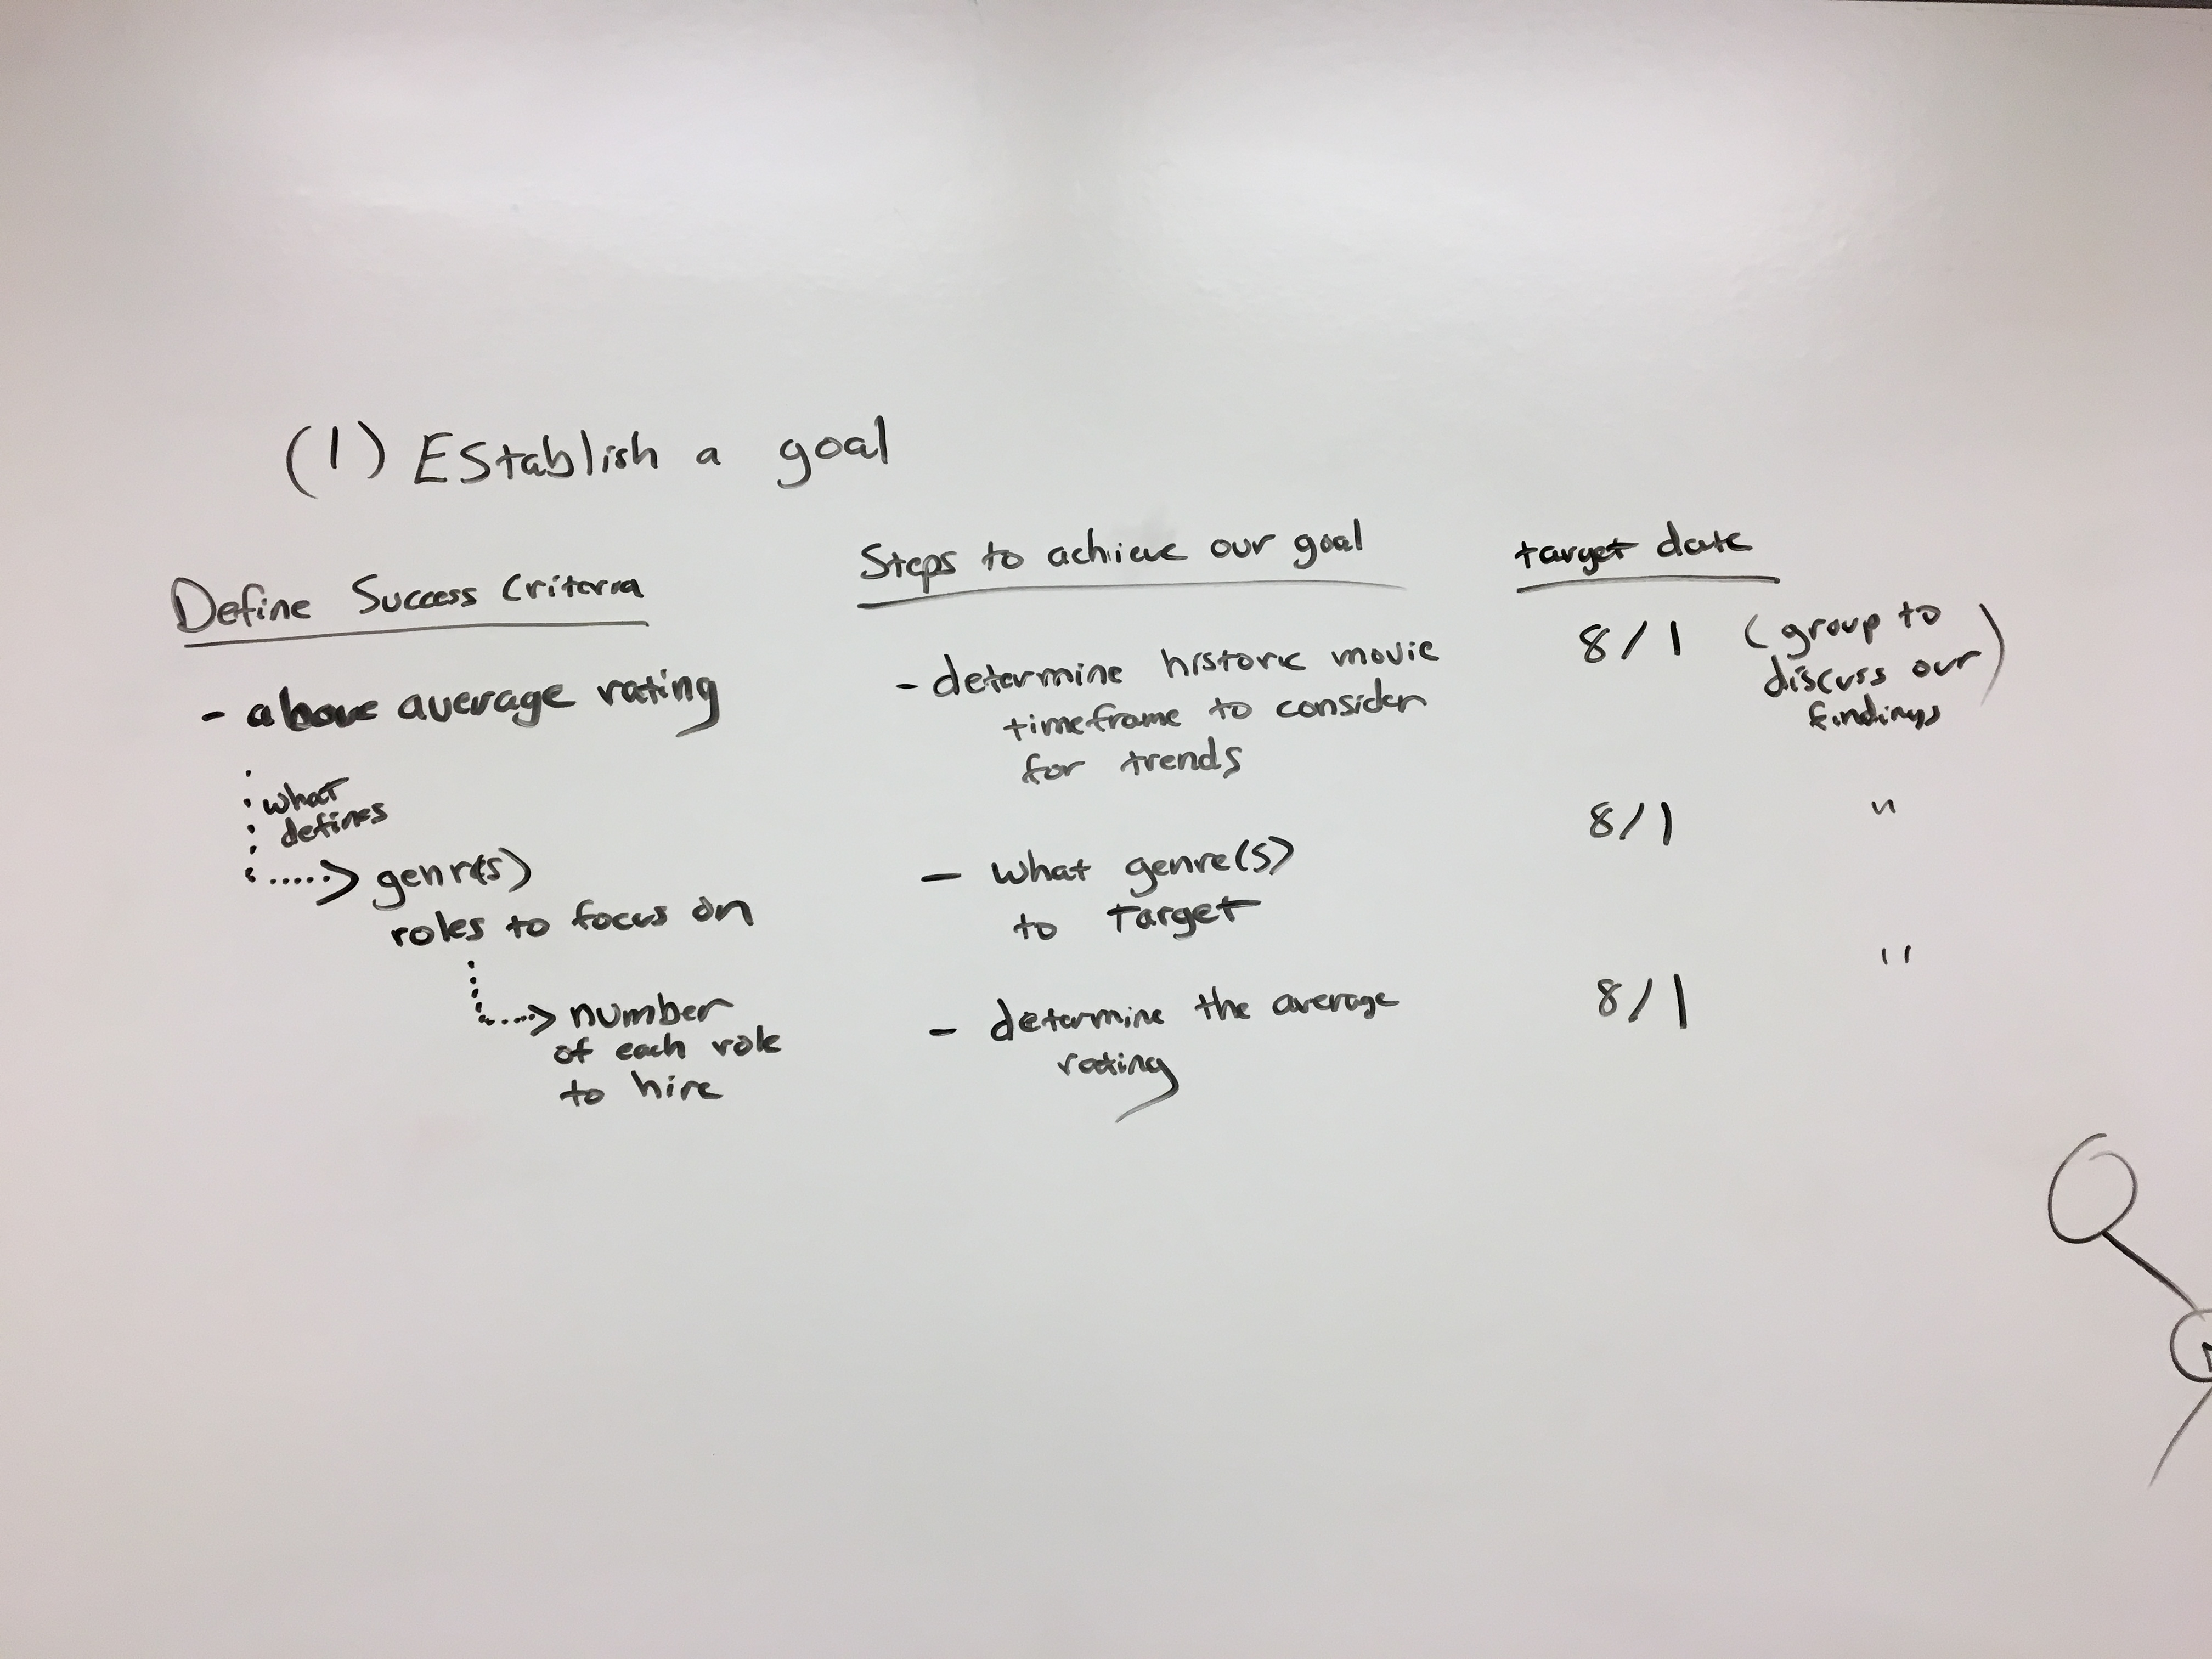 (1) Establish a goal
Define Success Criteria
- above average rating
what
defines
genre(s)
roles to focus on
number
of each role
to hire
Steps to achieve our goal
- determine historic movie
timeframe to consider
for trends
- what genre(s)
to target
- determine the average
rating
target date
8/1 (group to
discuss our)
findings
8/1 "
8/1 "